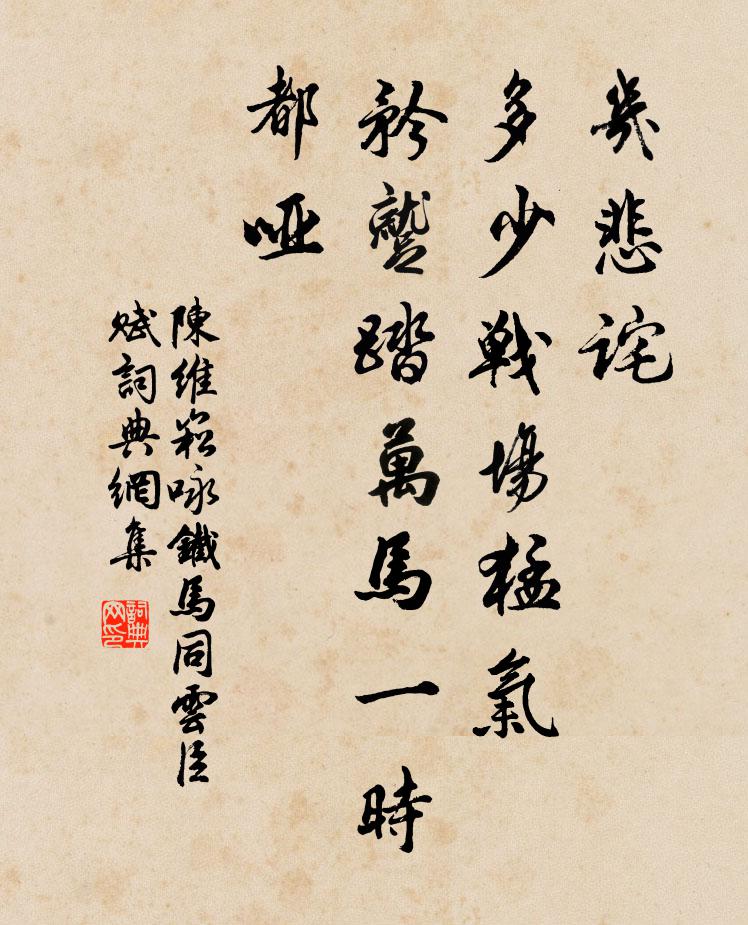 幾悲詫
多少戰場猛氣
矜蹵踏萬馬一時
都啞
陳維崧咏鐵馬同雲臣
賦詞典網集
詞典
网印